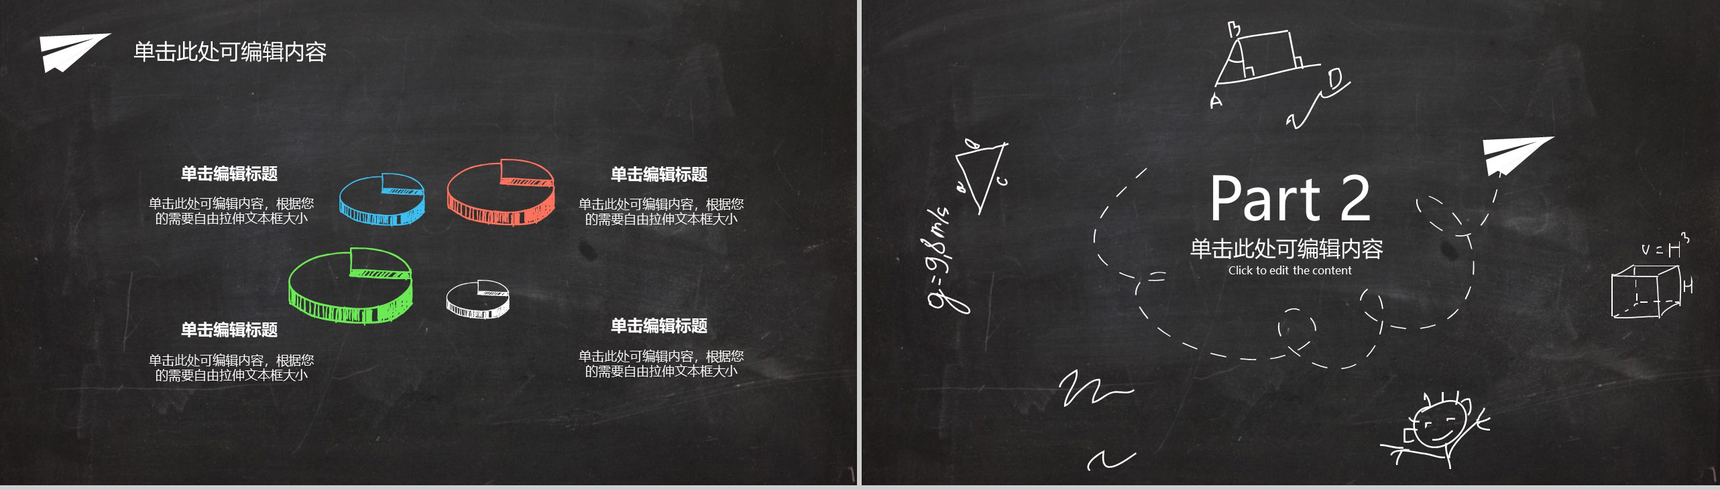 单击此处可编辑内容
单击编辑标题
单击此处可编辑内容，根据您
的需要自由拉伸文本框大小
单击编辑标题
单击此处可编辑内容，根据您
的需要自由拉伸文本框大小
单击编辑标题
单击此处可编辑内容，根据您
的需要自由拉伸文本框大小
单击编辑标题
单击此处可编辑内容，根据您
的需要自由拉伸文本框大小
B
A
D
B
a
c
g=9,8m/s
Part 2
单击此处可编辑内容
Click to edit the content
V=H³
H